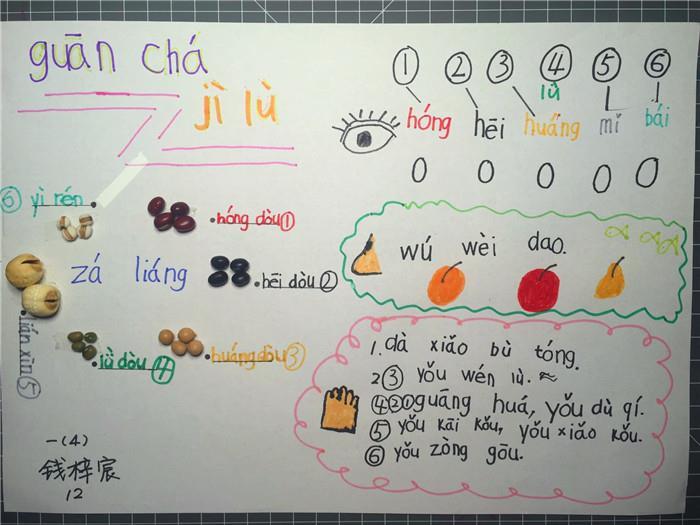 guān chá
jì lù
① ② ③ ④ ⑤ ⑥
hóng hēi huáng lǜ mǐ bái
0 0 0 0 0
wú wèi dao.
⑥ yì rén
hóng dòu ①
zá liáng
hēi dòu ②
lián xīn ⑤
lǜ dòu ④
huáng dòu ③
1. dà xiǎo bù tóng.
2 ③ yǒu wén lù.
④②① guāng huá, yǒu dù qí.
⑤ yǒu kāi kǒu, yǒu xiǎo kǒu.
⑥ yǒu zòng gōu.
一(4)
钱梓宸
12